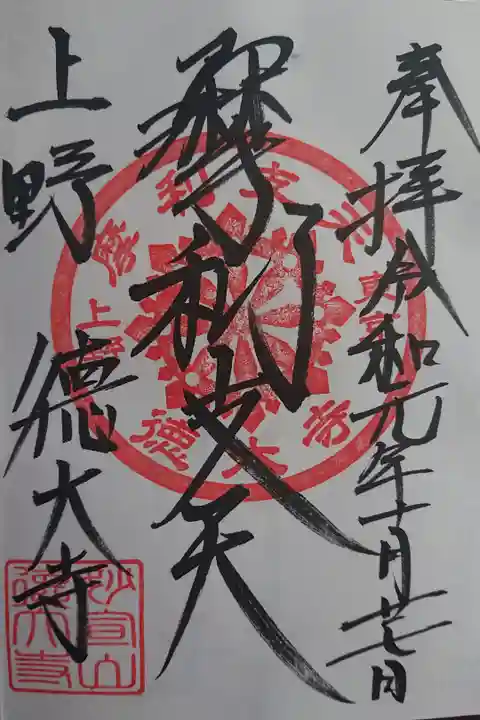 奉拝令和元年十月廿七日
摩利支天
上野 徳大寺
摩利支天
東京
上野
徳大寺
妙宣山
徳大寺